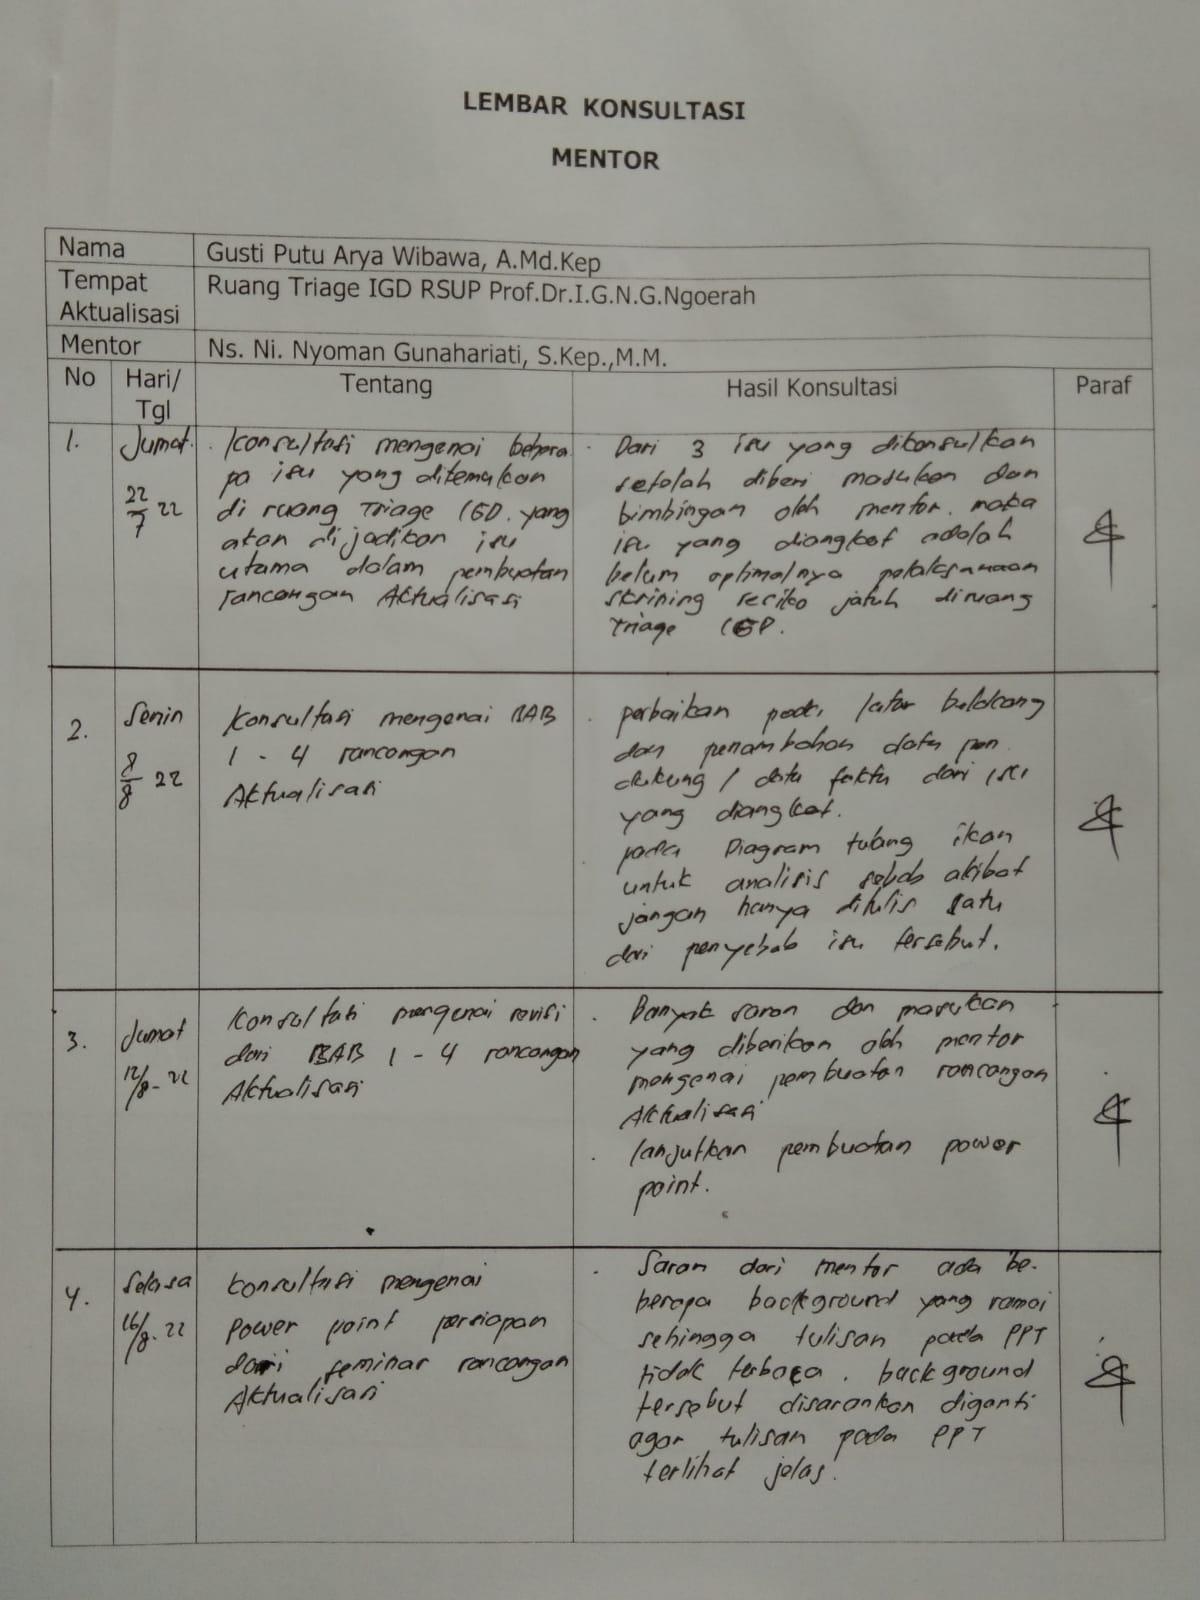 LEMBAR KONSULTASI
MENTOR
Nama
Gusti Putu Arya Wibawa, A.Md.Kep
Tempat
Aktualisasi
Ruang Triage IGD RSUP Prof.Dr.I.G.N.G.Ngoerah
Mentor
Ns. Ni. Nyoman Gunahariati, S.Kep.,M.M.
No
Hari/
Tgl
Tentang
Hasil Konsultasi
Paraf
1.
Jumat
22/7 22
. Konsultasi mengenai bebera
pa isu yang ditemukan
di ruang Triage IGD. yang
akan dijadikan isu
utama dalam pembuatan
rancangan Aktualisasi
. Dari 3 isu yang dikonsulkan
setelah diberi masukan dan
bimbingan oleh mentor. maka
isu yang diangkat adalah
belum optimalnya pelaksanaan
skrining resiko jatuh diruang
Triage IGD.
2.
Senin
8/8 22
Konsultasi mengenai BAB
1 - 4 rancangan
Aktualisasi
. perbaikan pada latar belakang
dan penambahan data pen
dukung / data fakta dari isu
yang diangkat.
. pada Diagram tulang ikan
untuk analisis sebab akibat
jangan hanya ditulis satu
dari penyebab isu tersebut.
3.
Jumat
12/8-22
Konsultasi mengenai revisi
dari BAB 1 - 4 rancangan
Aktualisasi
. Banyak saran dan masukan
yang diberikan oleh mentor
mengenai pembuatan rancangan
Aktualisasi
. lanjutkan pembuatan power
point.
4.
Selasa
16/8-22
Konsultasi mengenai
Power point persiapan
dari seminar rancangan
Aktualisasi
. Saran dari mentor ada be-
berapa background yang ramai
sehingga tulisan pada PPT
tidak terbaca. background
tersebut disarankan diganti
agar tulisan pada PPT
terlihat jelas.